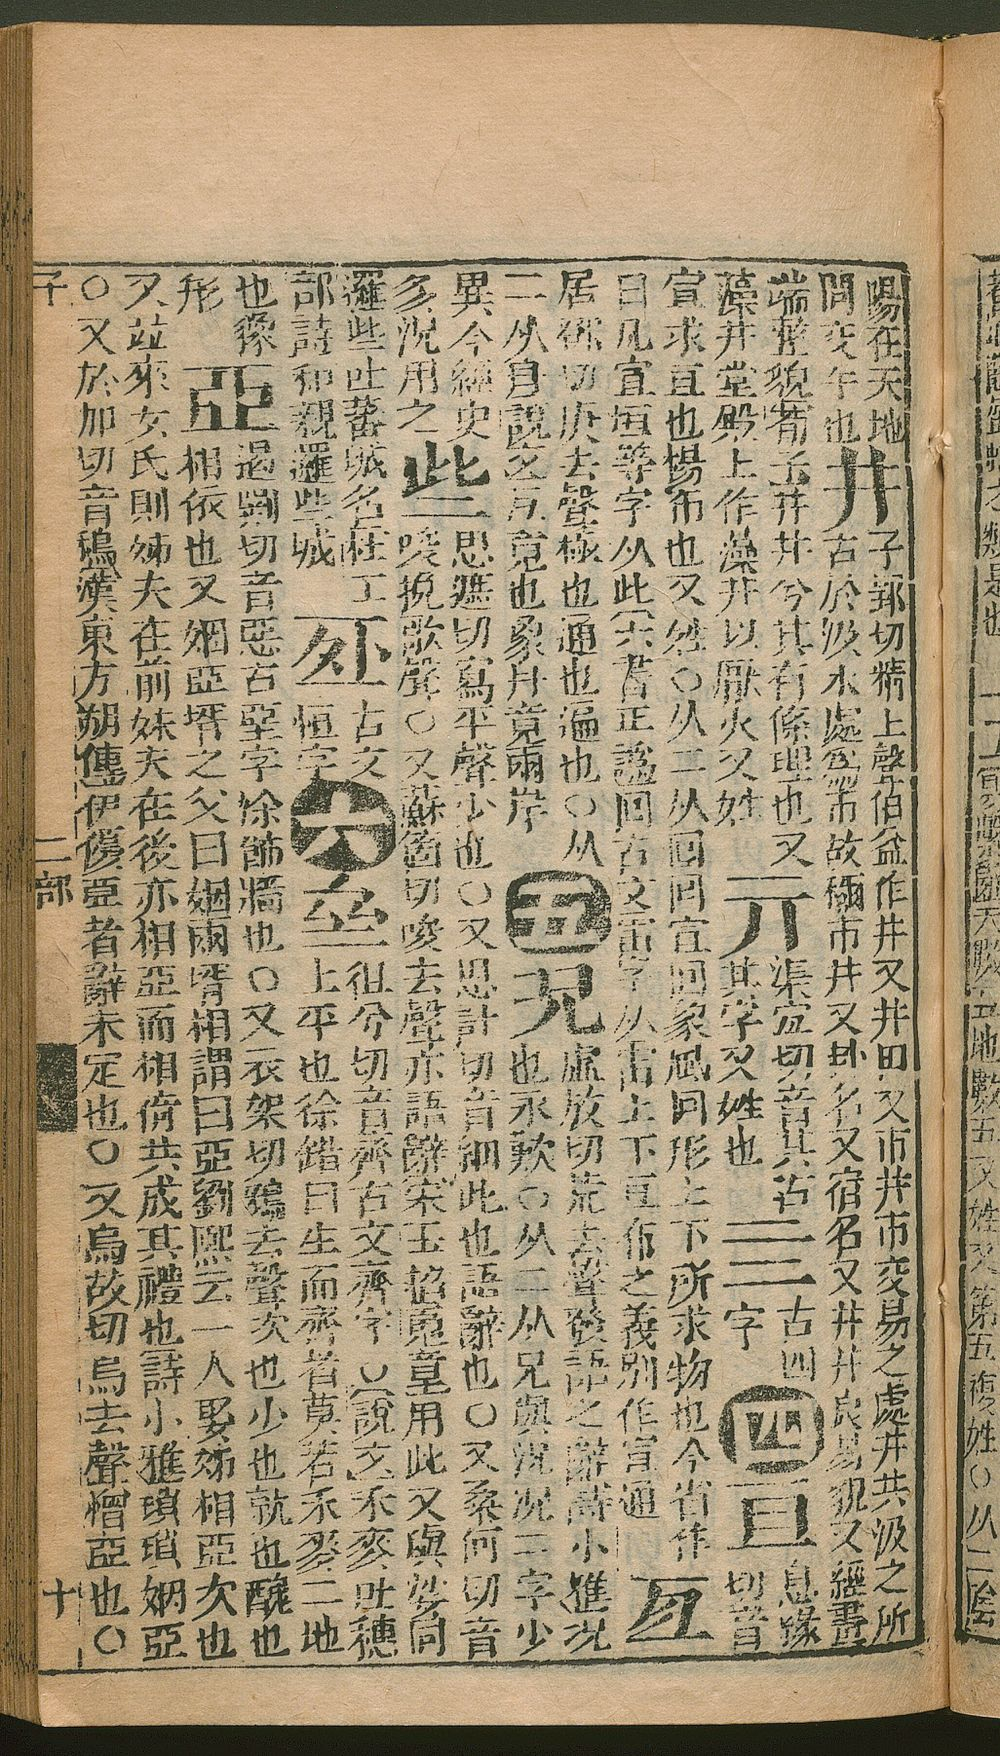 陽在天地
間交午也
井
子郢切精上聲伯益作井又井田又市井市交易之處井共汲之所
古於汲水處爲市故稱市井又卦名又宿名又井井良易貌又經畫
端整貌荀子井井兮其有條理也又
藻井堂殿上作藻井以厭火又姓
亓
渠宜切音其古
其字又姓也
亖
古四
字
四
亘
息緣
切音
宣求亘也揚布也又姓○从二从囘囘宣囘象風囘形上下所求物也今省作
日凡宣垣等字从此六書正譌囘古文雷字从雷上下亘布之義別作宣通
亙
居鄧切庚去聲極也通也遍也○从
二从舟說文亙竟也象舟竟兩岸
五
况
虛放切荒去聲發語之辭詩小雅况
也永歎○从二从兄與況况二字少
異今經史
多況用之
些
思遮切寫平聲少也○又思計切音細此也語辭也○又桑何切音
唆挽歌聲○又蘇箇切唆去聲亦語辭宋玉招䰟章用此又與娑同
邏些吐蕃城名在丁
部詩和親邏些城
𠄨
古文
恒字
六
亝
徂兮切音齊古文齊字○說文禾麥吐穗
上平也徐鍇曰生而齊者莫若禾麥二地
也像
形
亞
遏劌切音惡古堊字塗飾牆也○又衣架切鴉去聲次也少也就也醜也
相依也又姻亞壻之父曰姻兩壻相謂曰亞劉熙云一人娶姊相亞次也
又竝來女氏則姊夫在前妹夫在後亦相亞而相倚共成其禮也詩小雅瑣瑣姻亞
○又於加切音鴉漢東方朔傳伊優亞者辭未定也○又烏故切烏去聲憎亞也○
子
二部
十